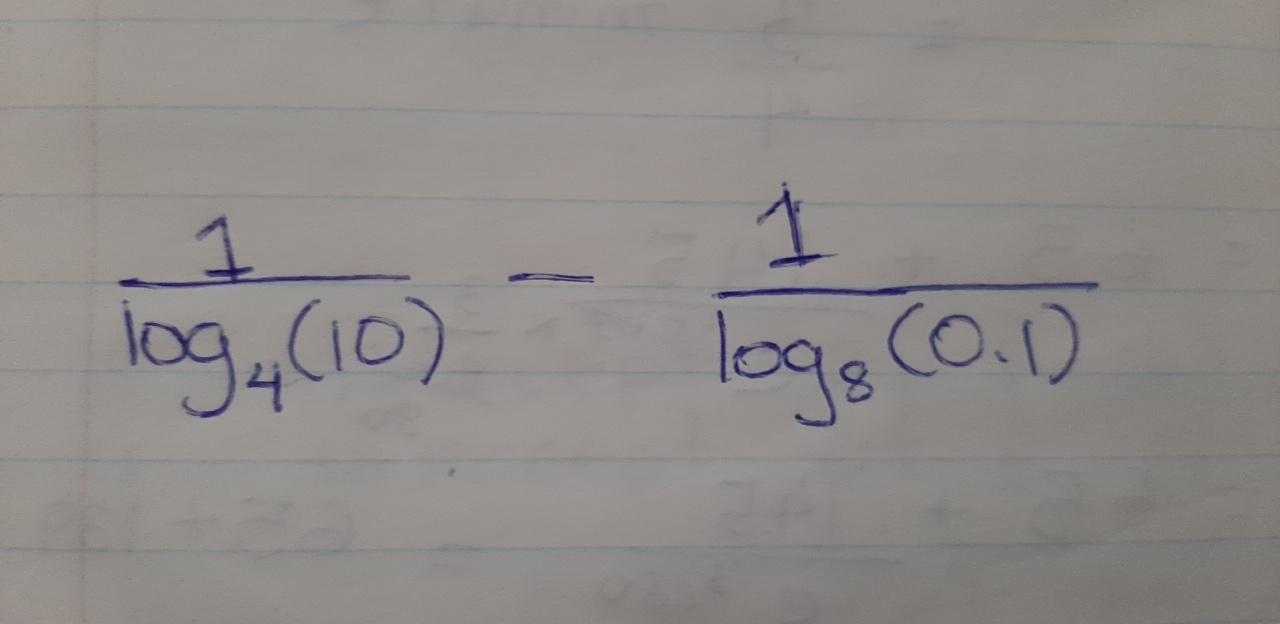 1/log₄(10) − 1/log₈(0.1)